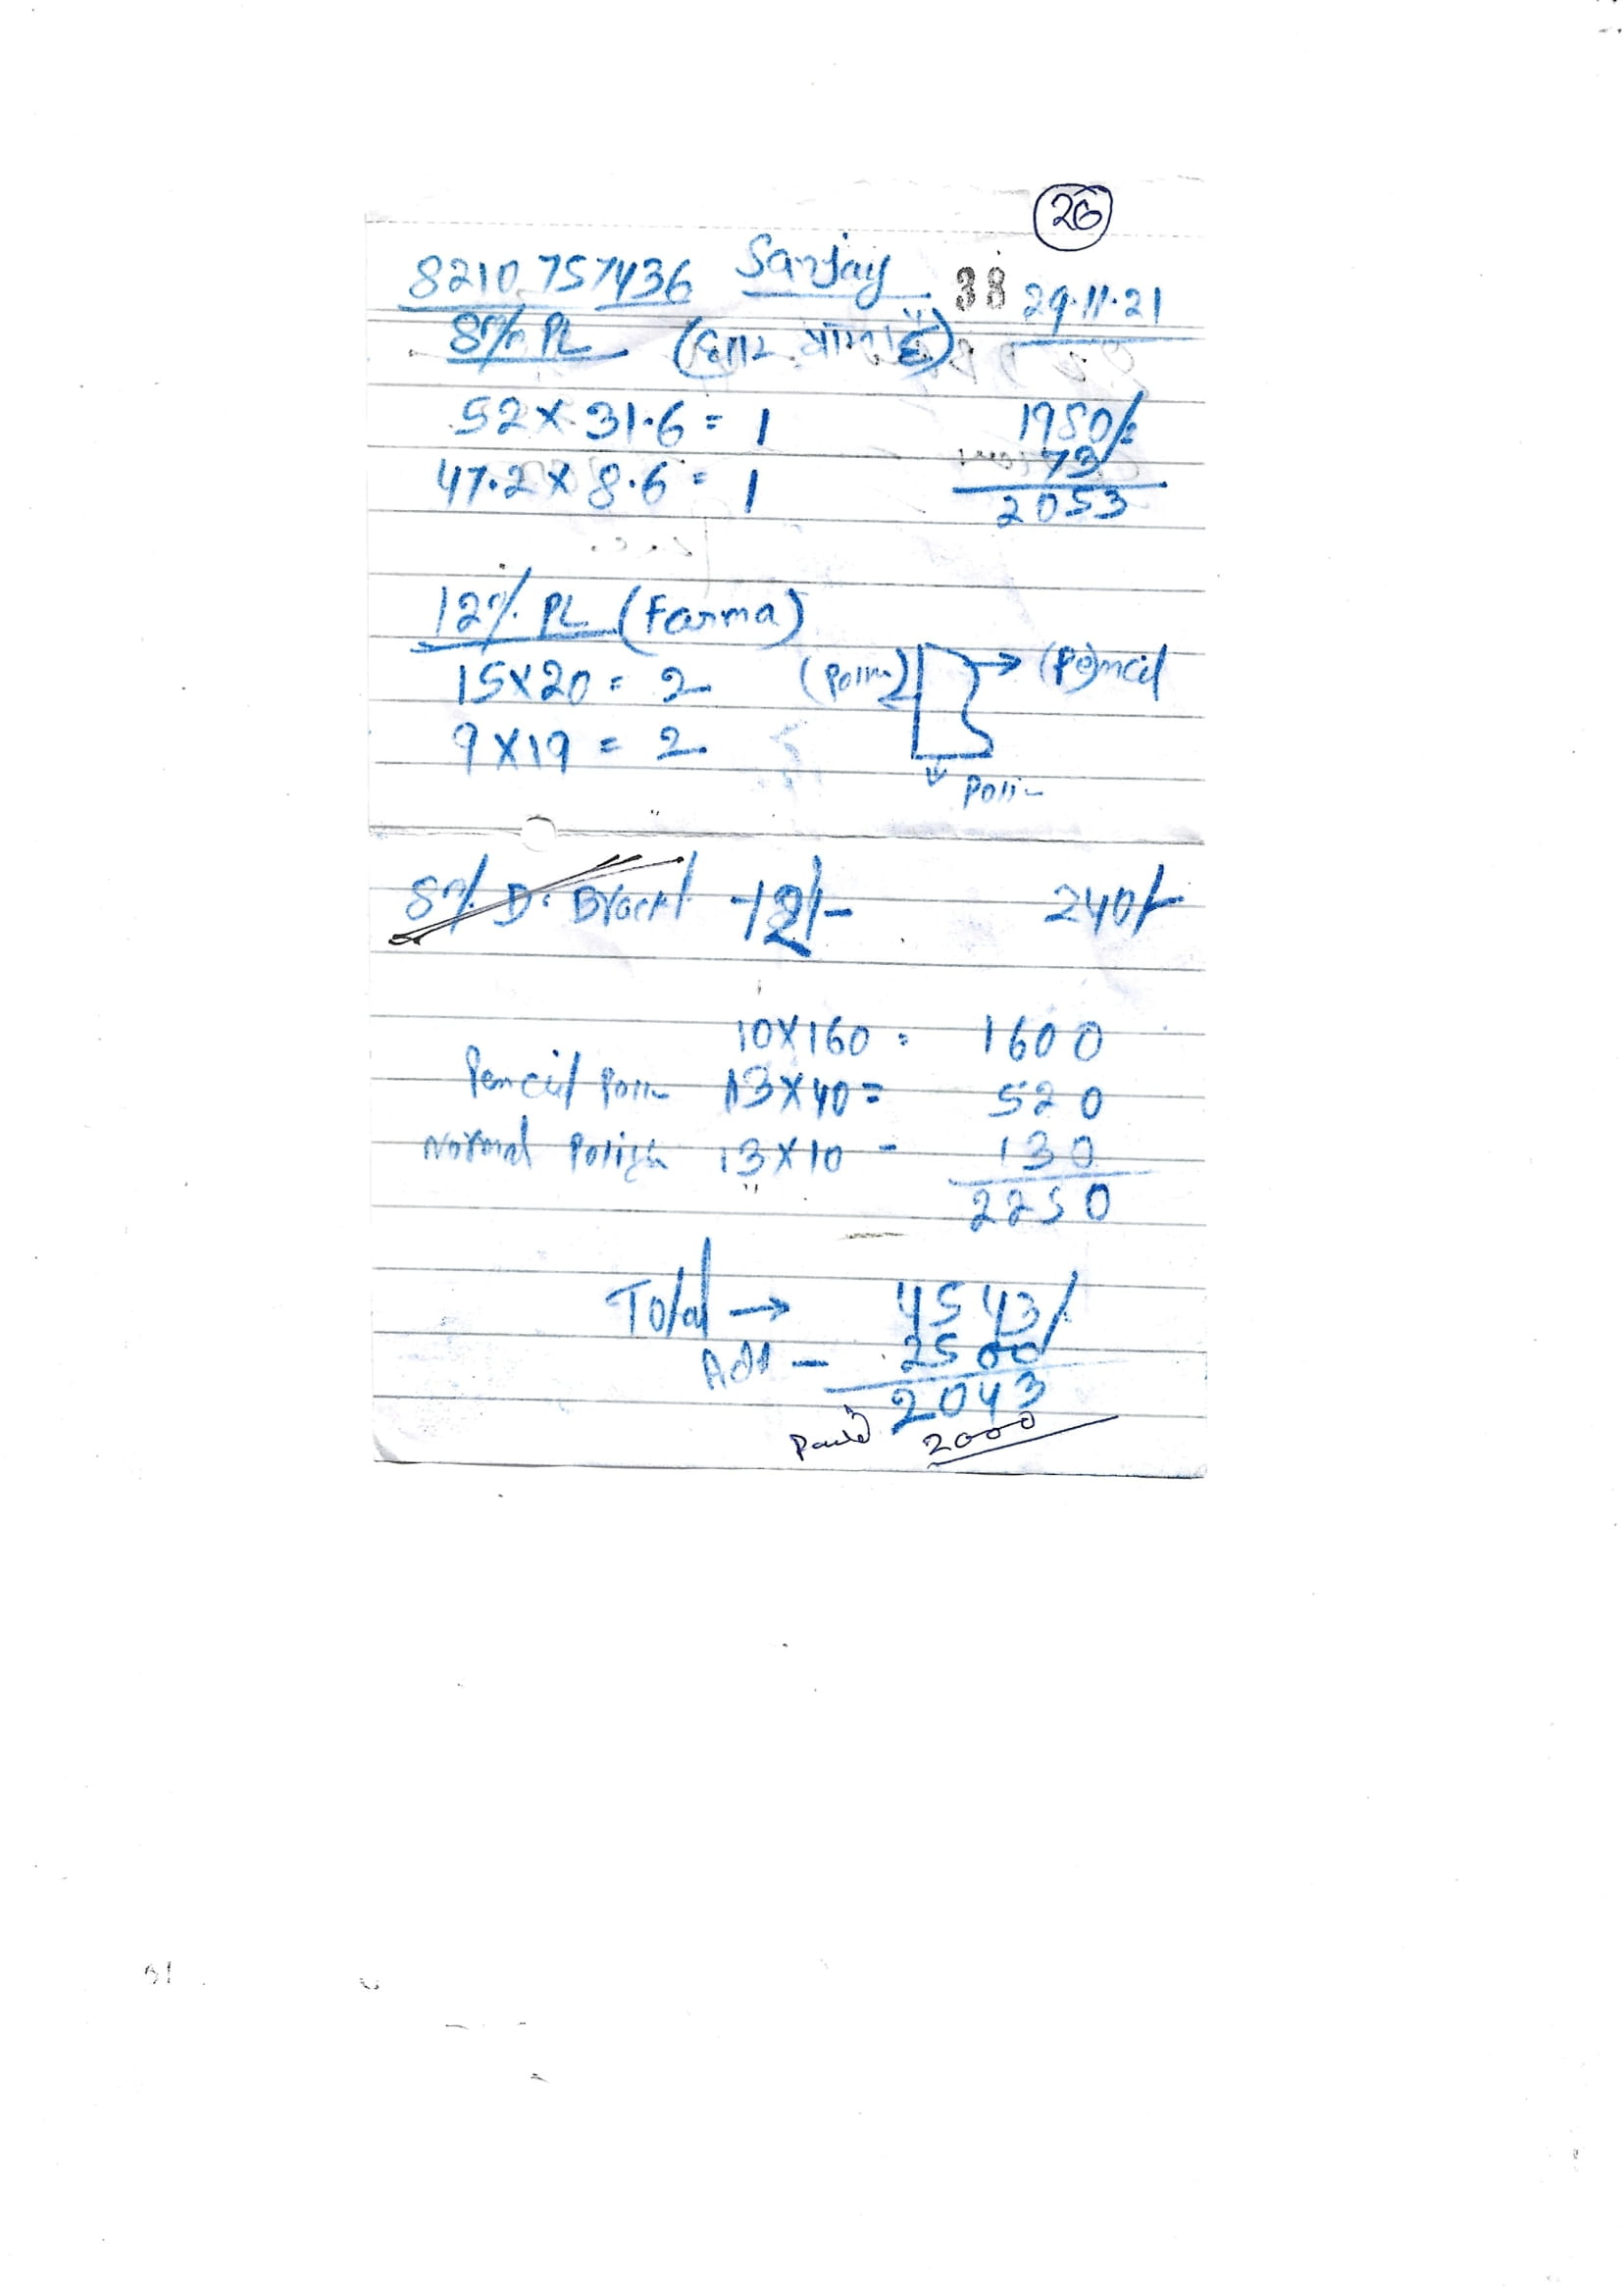 26
8210757436 Sanjay 38 29.11.21
8% PL (धार मारना है)
52 x 31.6 = 1 1980/-
47.2 x 8.6 = 1 73/
2053
12% PL (Farma)
15x20 = 2 (Polin) → (Pencil
9x19 = 2
Poli-
8% D. Brack -12/- 240/-
10x160 = 1600
Pencil Polin 13x40 = 520
Normal Polish 13x10 - 130
2250
Total → 4543/
Add - 2500
2043
Paid 2000